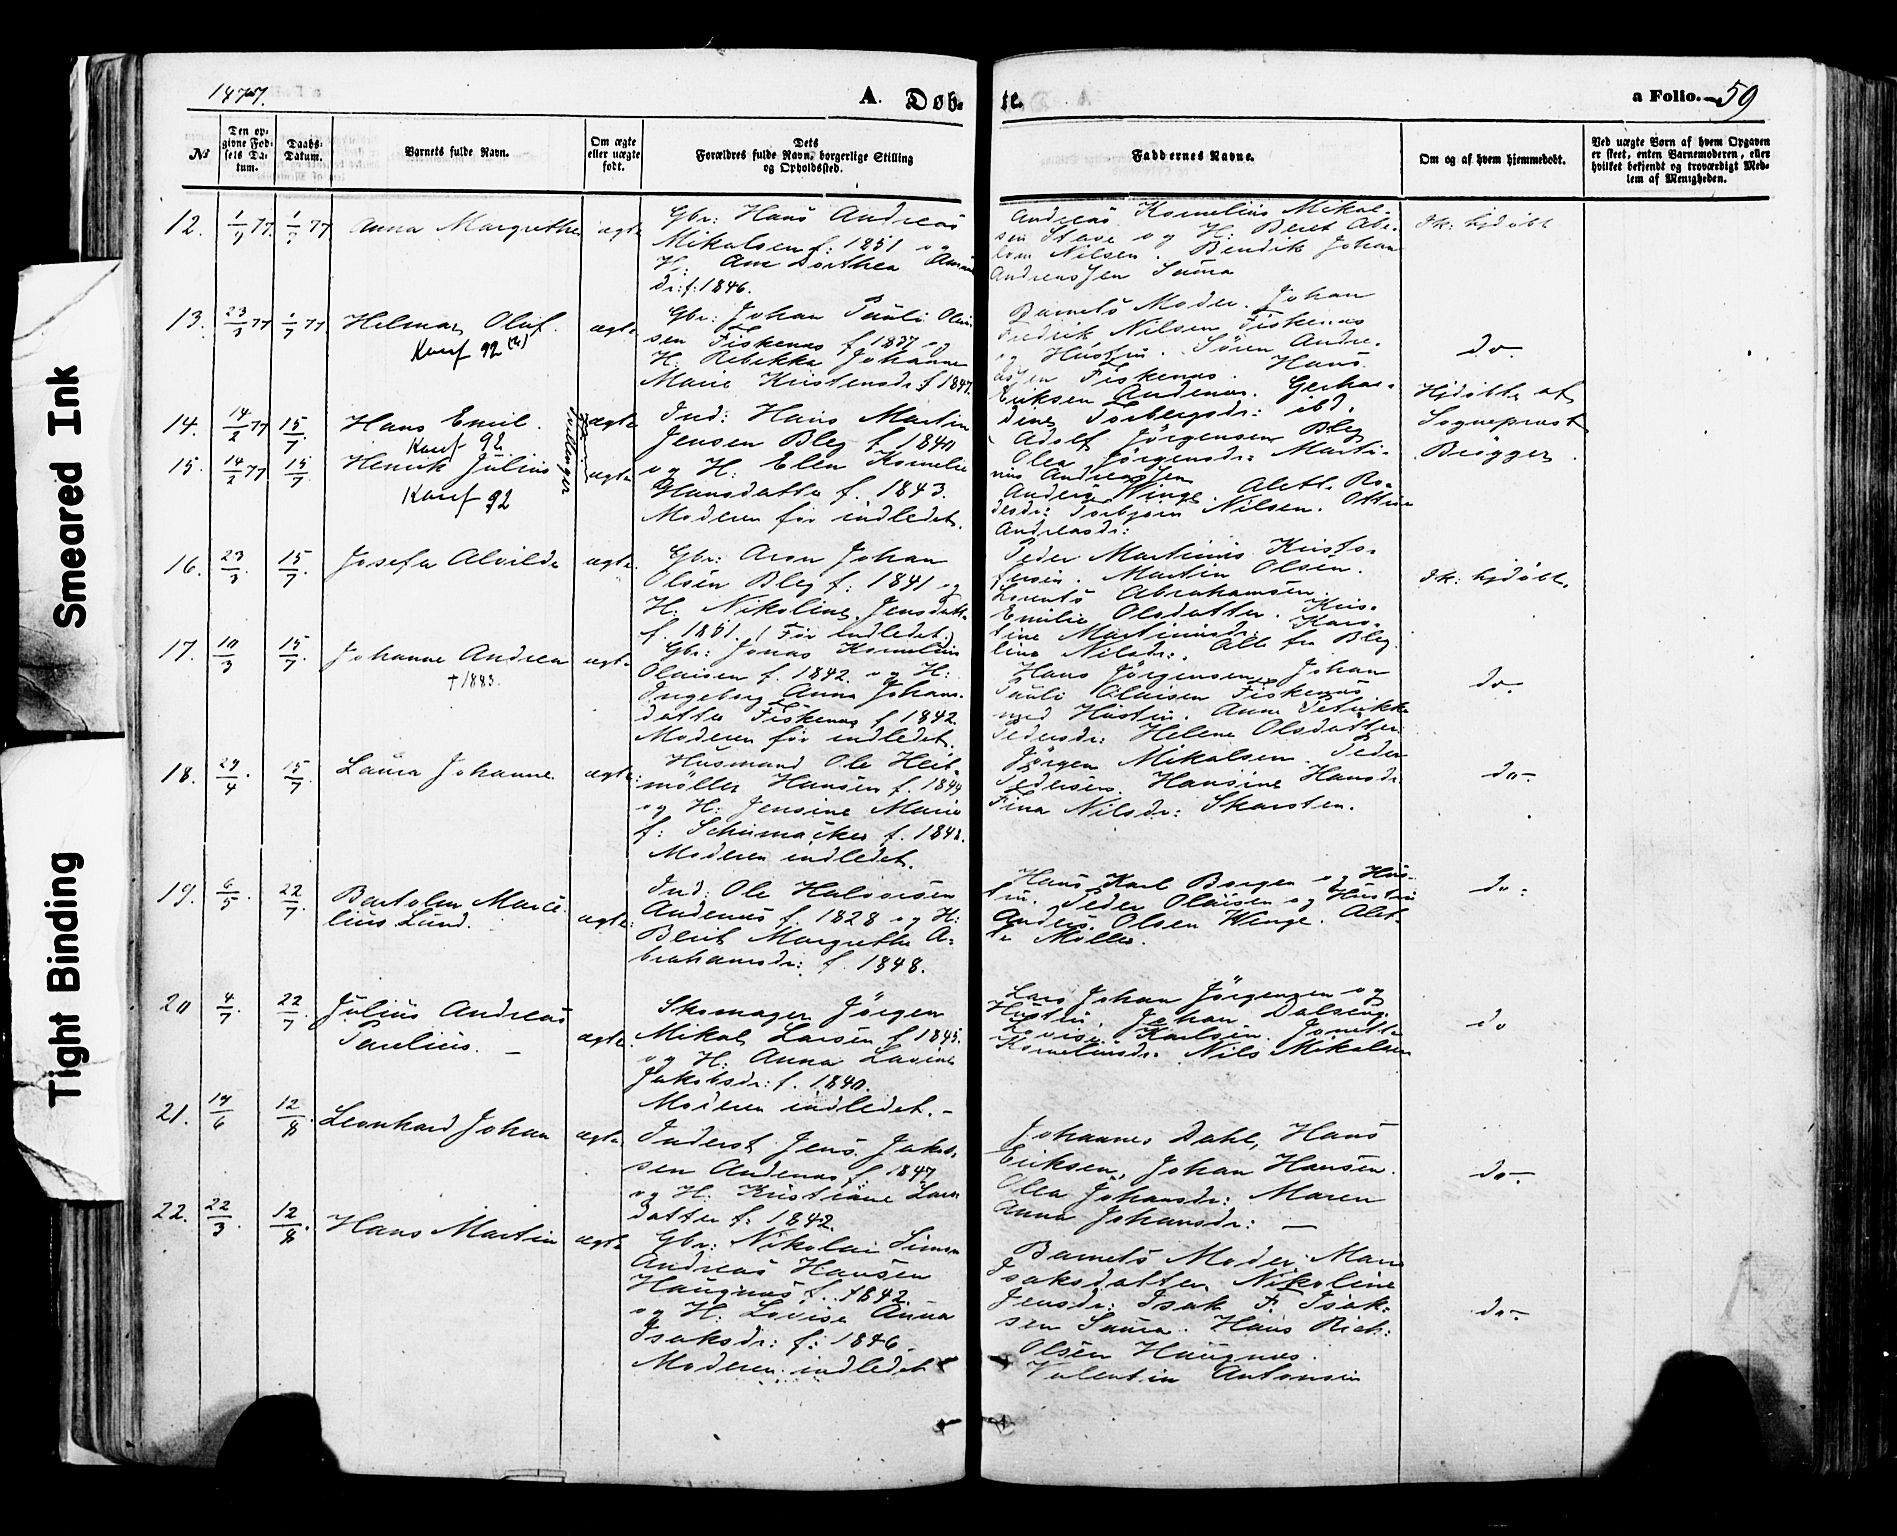 1877.
A. Døb-
te.
a Folio. 59
No
Den op-
givne Fød-
sels Da-
tum.
Daabs-
Datum.
Barnets fulde Navn.
Om ægte
eller uægte
født.
Dets
Forældres fulde Navn, borgerlige Stilling
og Opholdssted.
Faddernes Navne.
Om og af hvem hjemmedøbt.
Ved uægte Børn af hvem Opgaven
er skeet, enten Barnemoderen, eller
hvilket bekjendt og troværdigt Med-
lem af Menigheden.
12.
77.
77
Anna Margrethe
ægte
Gbr: Hans Andreas
Mikalsen f. 1851 og
H: Ane Dorthea
dr: f: 1846.
Andreas Kornelius Mikal-
sen Stave og H: Beret Abe-
lom Nilsen. Bendik Johan
Andreassen Saura
Ik: hjdøbt
13.
23/3 77
1/7 77
Helmar Oluf.
Konf 92
ægte
Gbr: Johan Pauli Olai-
sen Fiskenæs f 1837 og
H: Rebekka Johanna
Marie Kristensdr: f 1847.
Barnets Moder. Johan
Fredrik Nilsen Fiskenæs
og Hustru. Søren Andre-
asen Fiskenæs. Hans
Eriksen Andenæs. Gerhar-
dine Torbergsdr: ibd.
do.
14.
14/2 77
15/7
Hans Emil.
Konf 92
Tvillinger
ægte
15.
14/2 77
15/7
Henrik Julius
Konf 92
ægte
Ind: Hans Martin
Jensen Bleg f 1840
og H. Elen Kornelie
Hansdatter f. 1843.
Moderen før indledet.
Adolf Jørgensen Bleg
Olea Jørgensdr: Marti-
nus Andreassen
Anders Winge. Alett. Ro-
desdr: Torbjørn Nilsen. Ottine
Andreasdr:
Hjdøbte af
Sogneprest
Brøgger.
16.
23/3.
15/7
Josefa Alvilde
ægte.
Gbr: Aron Johan
Olsen Bleg f: 1841 og
H: Nikoline Jensdatte
f. 1851. (Før indledet.)
Peder Martinus Kristo-
fersen. Martin Olsen.
Lorents Abrahamsen.
Emilie Olsdatter. Kris-
tine Martinusdr. Karo-
line Nilsdr. Alle fra Bleg
Ik: hjdøbt.
17.
10/3
15/7
Johanne Andrea
† 1883.
ægte
Gbr: Jonas Kornelius
Olaisen f. 1842 og H:
Ingeborg Anna Johans-
datter Fiskenæs f 1842
Moderen før indledet.
Hans Jørgensen. Johan
Pauli Olaisen Fiskenæs
med Hustru. Anne Petrikke
Pedersdr: Helene Olsdatter.
do.
18.
29/4.
15/7
Laura Johanne.
ægte
Husmand Ole Heit-
møller Hansen f. 1844
og H: Jensine Marie
f: Schumacker f. 1848.
Moderen indledet.
Jørgen Mikalsen. Peder
Pedersen. Hansine Hansdr.
Fina Nilsdr: Skarsten.
do.
19.
6/5.
22/7.
Bartolm Marce-
lius Lund.
ægte.
Ind: Ole Halvorsen
Andenæs f. 1828 og H:
Berit Margrethe A-
brahamsdr: f. 1848.
Hans Karl Borgen og Hus-
tru. Peder Olaisen og Hustru
Anders Olsen Winge. Alet-
te Møller.
do:
20
4/7
22/7
Julius Andreas
Parelius. –
ægte.
Skomager Jørgen
Mikal Larsen f 1845.
og H: Anna Lavine
Jakobsdr: f. 1840.
Moderen indledet. –
Lars Johan Jørgensen og
Hustru. Johan Dalseng.
Lovise Karlsen. Jonette
Korneliusdr. Nils Mikalsen
do
21.
19/6
12/8.
Leonhard Johan
ægte
Inderst Jens Jakob-
sen Andenæs f. 1847
og H: Kristiane Lars-
datter f: 1842.
Johannes Dahl, Hans
Eriksen, Johan Hansen.
Olea Johansdr: Maren
Anna Johansdr: —
do.
22.
22/3.
12/8.
Hans Martin
ægte
Gbr: Nikolai Simon
Andreas Hansen
Haugnæs f. 1842.
og H: Lovise Anna
Isaksdr: f: 1846.
Moderen indledet
Barnets Moder. Marie
Isaksdatter. Nikoline
Jensdr: Isak F. Isak-
sen Saura. Hans Rich:
Olsen Haugnæs.
Valentin Antonsen
do.
Smeared Ink
Tight Binding